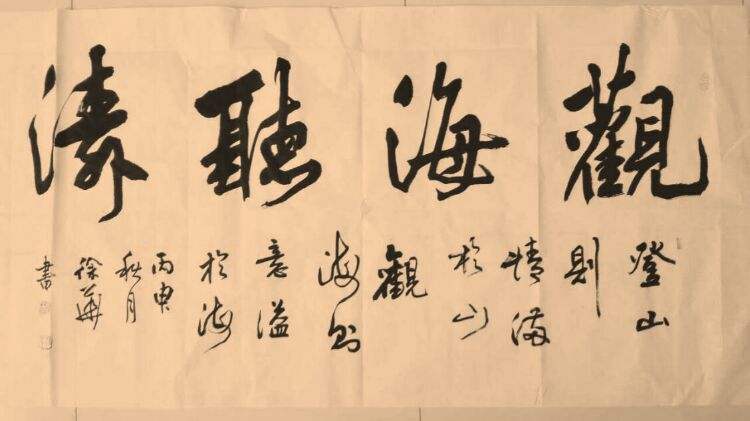 觀海聽濤
登山
則
情滿
於山
觀
海則
意溢
於海
丙申
秋月
徐華
書